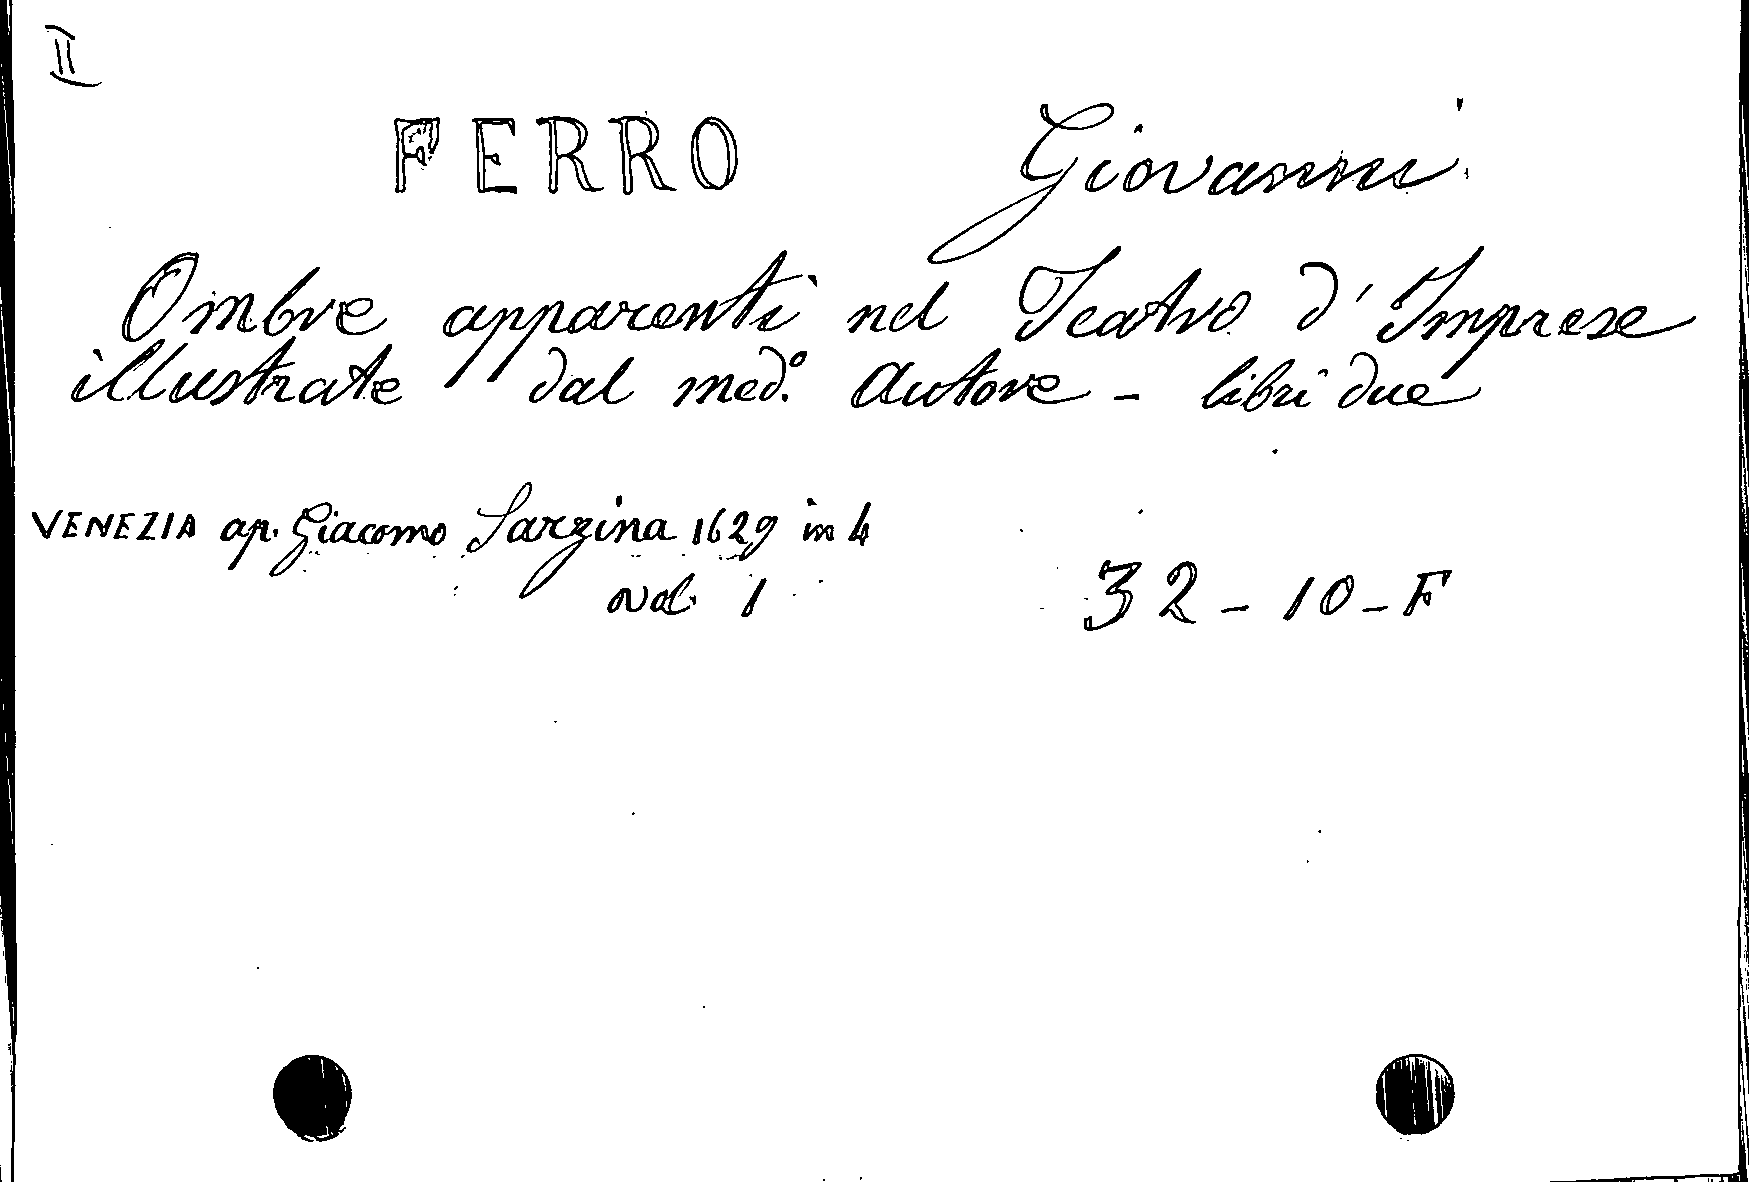 II
FERRO Giovanni
Ombre apparenti nel Teatro d'Imprese
illustrate dal med.º Autore - libri due
VENEZIA ap. Giacomo Sarzina 1629 in 4
vol. 1 32-10-F